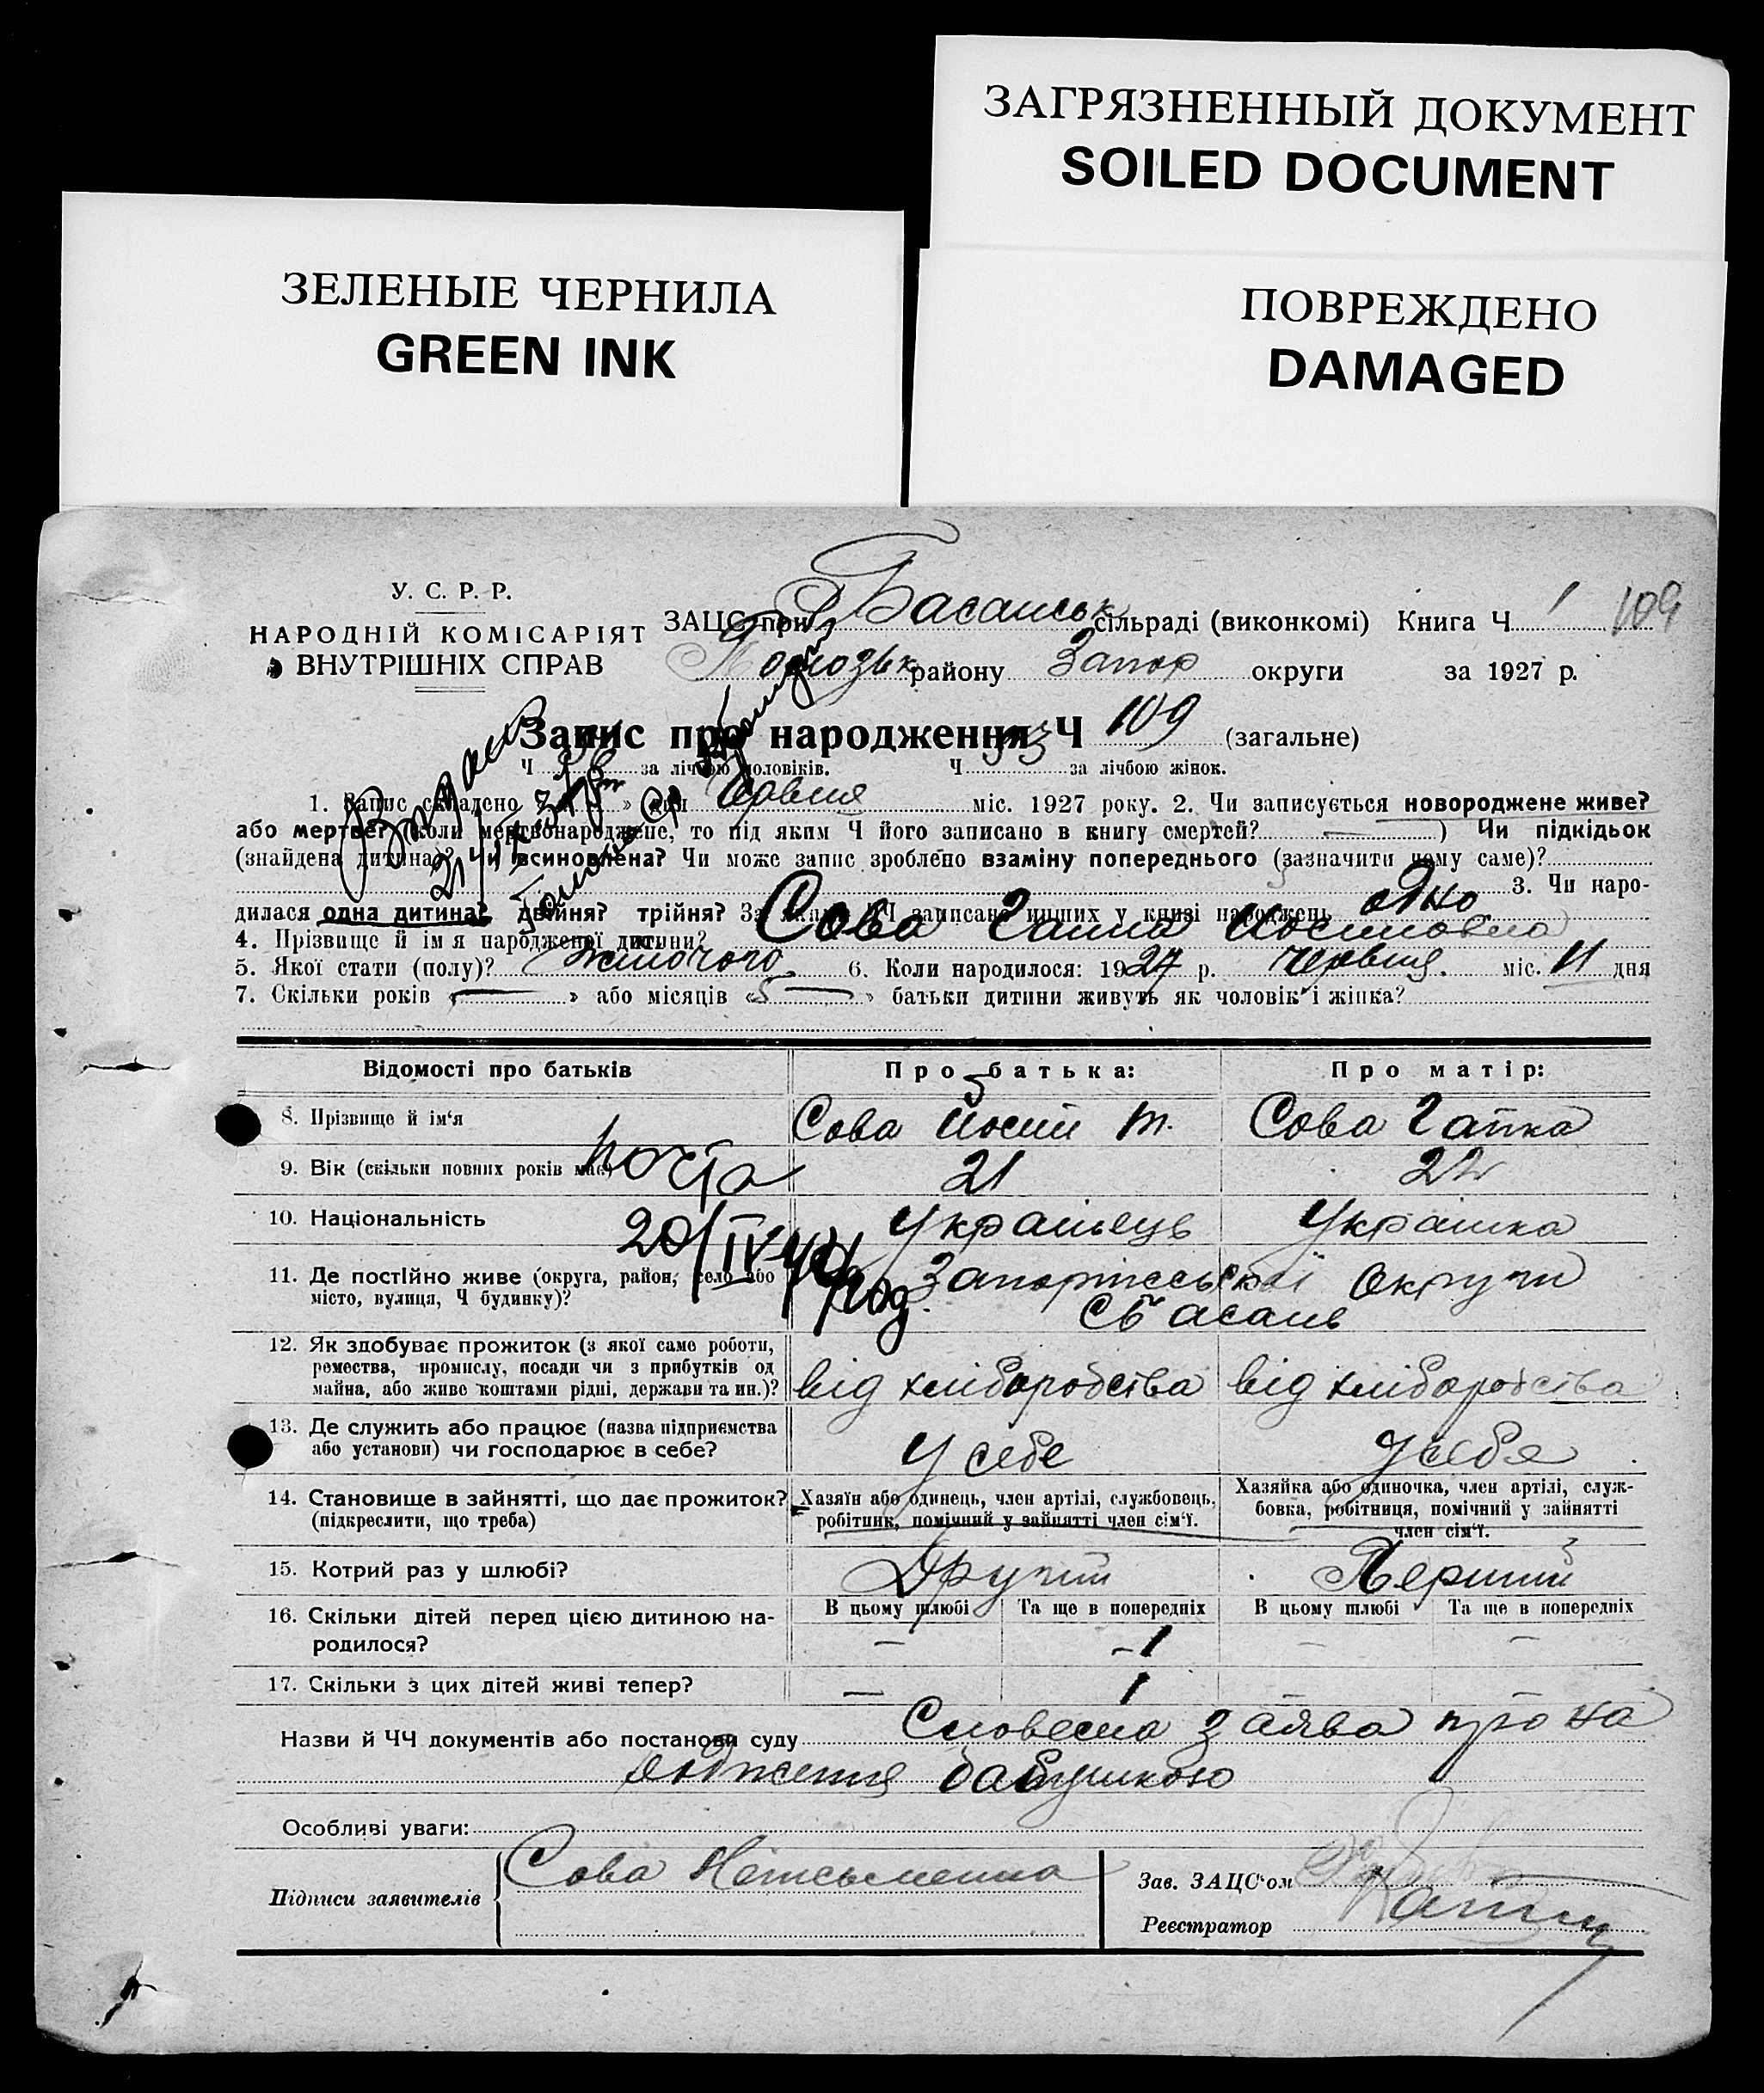 ЗАГРЯЗНЕННЫЙ ДОКУМЕНТ
SOILED DOCUMENT
ЗЕЛЕНЫЕ ЧЕРНИЛА
GREEN INK
ПОВРЕЖДЕНО
DAMAGED
У. С. Р. Р.
НАРОДНІЙ КОМІСАРІЯТ
ВНУТРІШНІХ СПРАВ
ЗАЦС при Басанськ сільраді (виконкомі) Книга Ч 1 109
району Запор округи за 1927 р.
Запис про народження Ч 109 (загальне)
Ч за лічбою чоловіків. Ч 53 за лічбою жінок.
1. Запис складено » дня Червня міс. 1927 року. 2. Чи записується новороджене живе?
або мертве? Коли мертвонароджене, то під яким Ч його записано в книгу смертей? — ) Чи підкідьок
(знайдена дитина)? Чи всиновлена? Чи може запис зроблено взаміну попереднього (зазначити чому саме)?
3. Чи наро-
дилася одна дитина? двійня? трійня? За якими ЧЧ записано инших у книзі народжень одно
4. Прізвище й ім я народженої дитини? Сова Ганна Иосиповна
5. Якої стати (полу)? жиночого 6. Коли народилося: 1927 р. Червня. міс. 11 дня
7. Скільки років « — » або місяців « — » батьки дитини живуть як чоловік і жінка?
Відомості про батьків Про батька: Про матір:
8. Прізвище й ім'я Сова Иосип Т. Сова Гапка
9. Вік (скільки повних років має) почта 21 22
10. Національність Українець Українка
20/IV-40
11. Де постійно живе (округа, район, село або Запоріжської Округи
місто, вулиця, Ч будинку)? год С Басань
12. Як здобуває прожиток (з якої саме роботи,
ремества, промислу, посади чи з прибутків од
майна, або живе коштами рідні, держави та ин.)? від хліборобства від хліборобства
13. Де служить або працює (назва підприємства
або установи) чи господарює в себе? У себе у себе
14. Становище в зайнятті, що дає прожиток? Хазяїн або одинець, член артілі, службовець, Хазяйка або одиночка, член артілі, служ-
(підкреслити, що треба) робітник, помічний у зайнятті член сім'ї. бовка, робітниця, помічний у зайнятті
член сім'ї.
15. Котрий раз у шлюбі? Другий Перший
16. Скільки дітей перед цією дитиною на- В цьому шлюбі Та ще в попередніх В цьому шлюбі Та ще в попередніх
родилося? — -1 — —
17. Скільки з цих дітей живі тепер? — 1 — —
Назви й ЧЧ документів або постанови суду Словесна заява про на
бабушкою
Особливі уваги:
Підписи заявителів Сова Неписьменна Зав. ЗАЦС'ом
Реєстратор